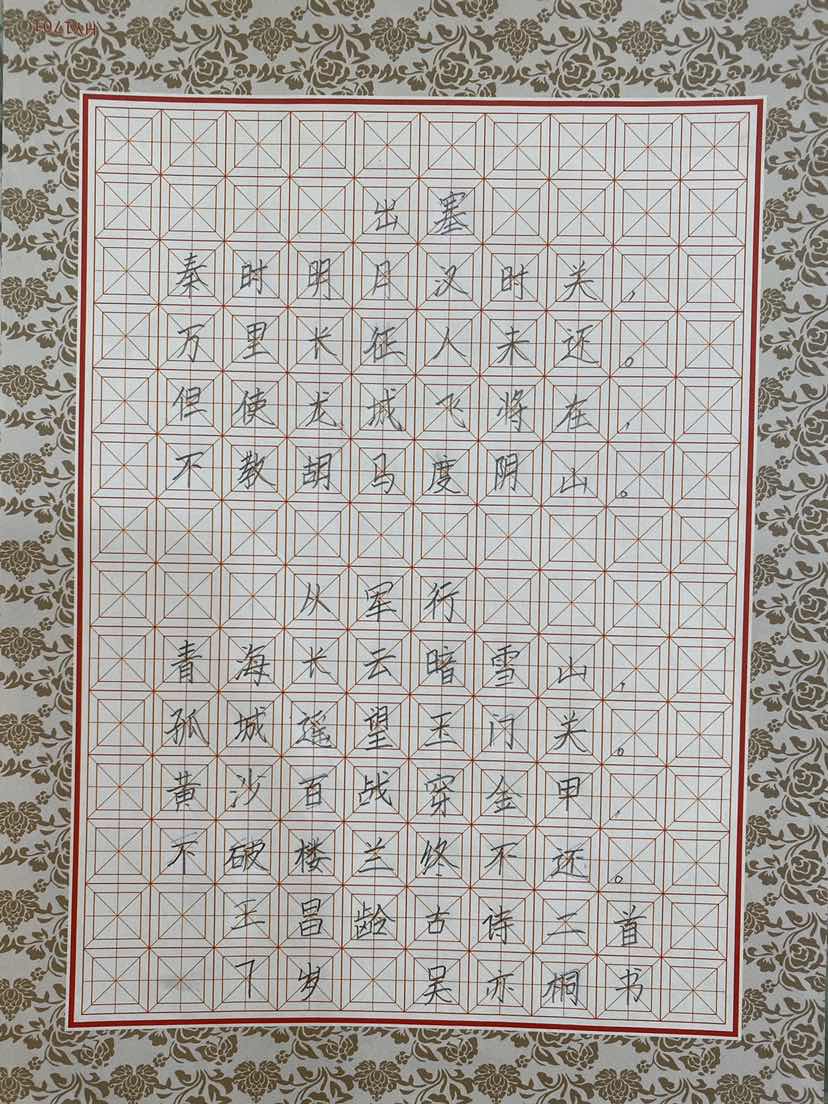 出塞
秦时明月汉时关，
万里长征人未还。
但使龙城飞将在，
不教胡马度阴山。
从军行
青海长云暗雪山，
孤城遥望玉门关。
黄沙百战穿金甲，
不破楼兰终不还。
王昌龄古诗二首
7岁 吴亦桐书